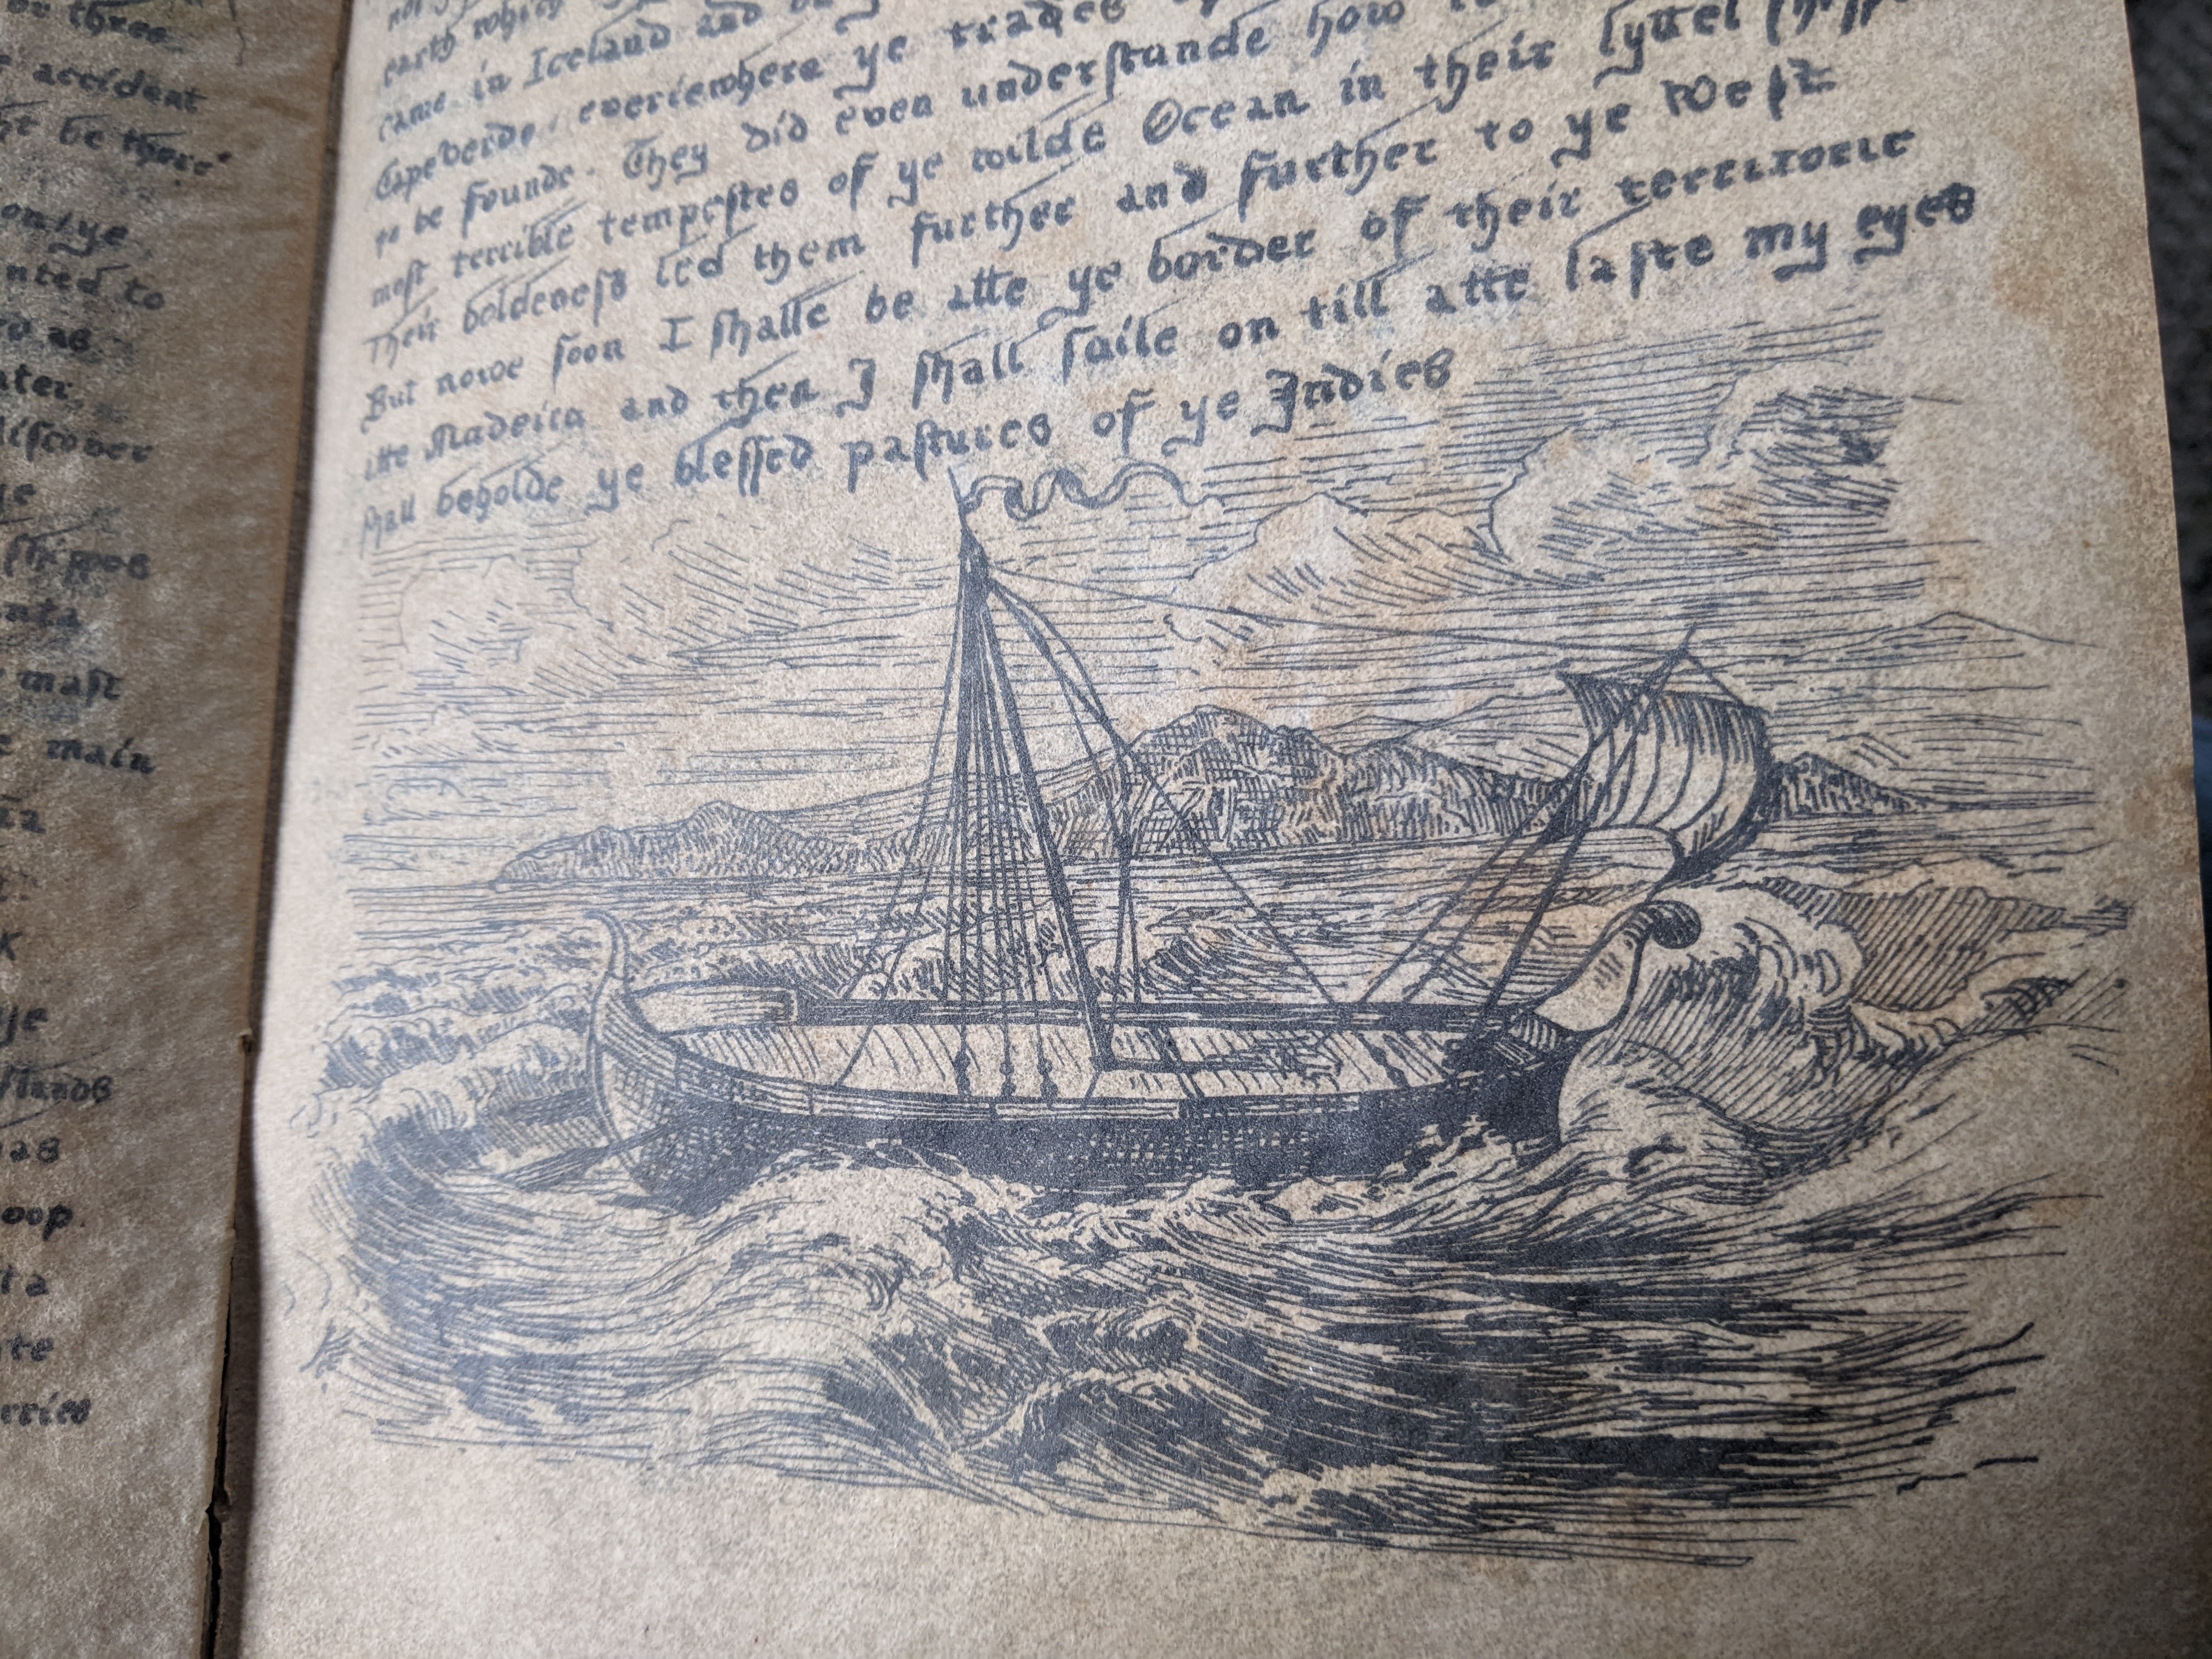 or three
accident
be there
on/ye
nted to
as
ater,
discover
ye
shippes
ata
mast
main
K
ye
slands
oop.
ta
te
rries
earth
came in Iceland and
Capeverde, everiewhere ye trades
to be founde. They did even understande how
most terrible tempestes of ye wilde Ocean in their lyttel
Their boldeness led them further and further to ye West.
But nowe soon I shalle be atte ye border of their territorie
itte Madeira and then I shall saile on till atte laste my eyes
shall beholde ye blessed pastures of ye Indies